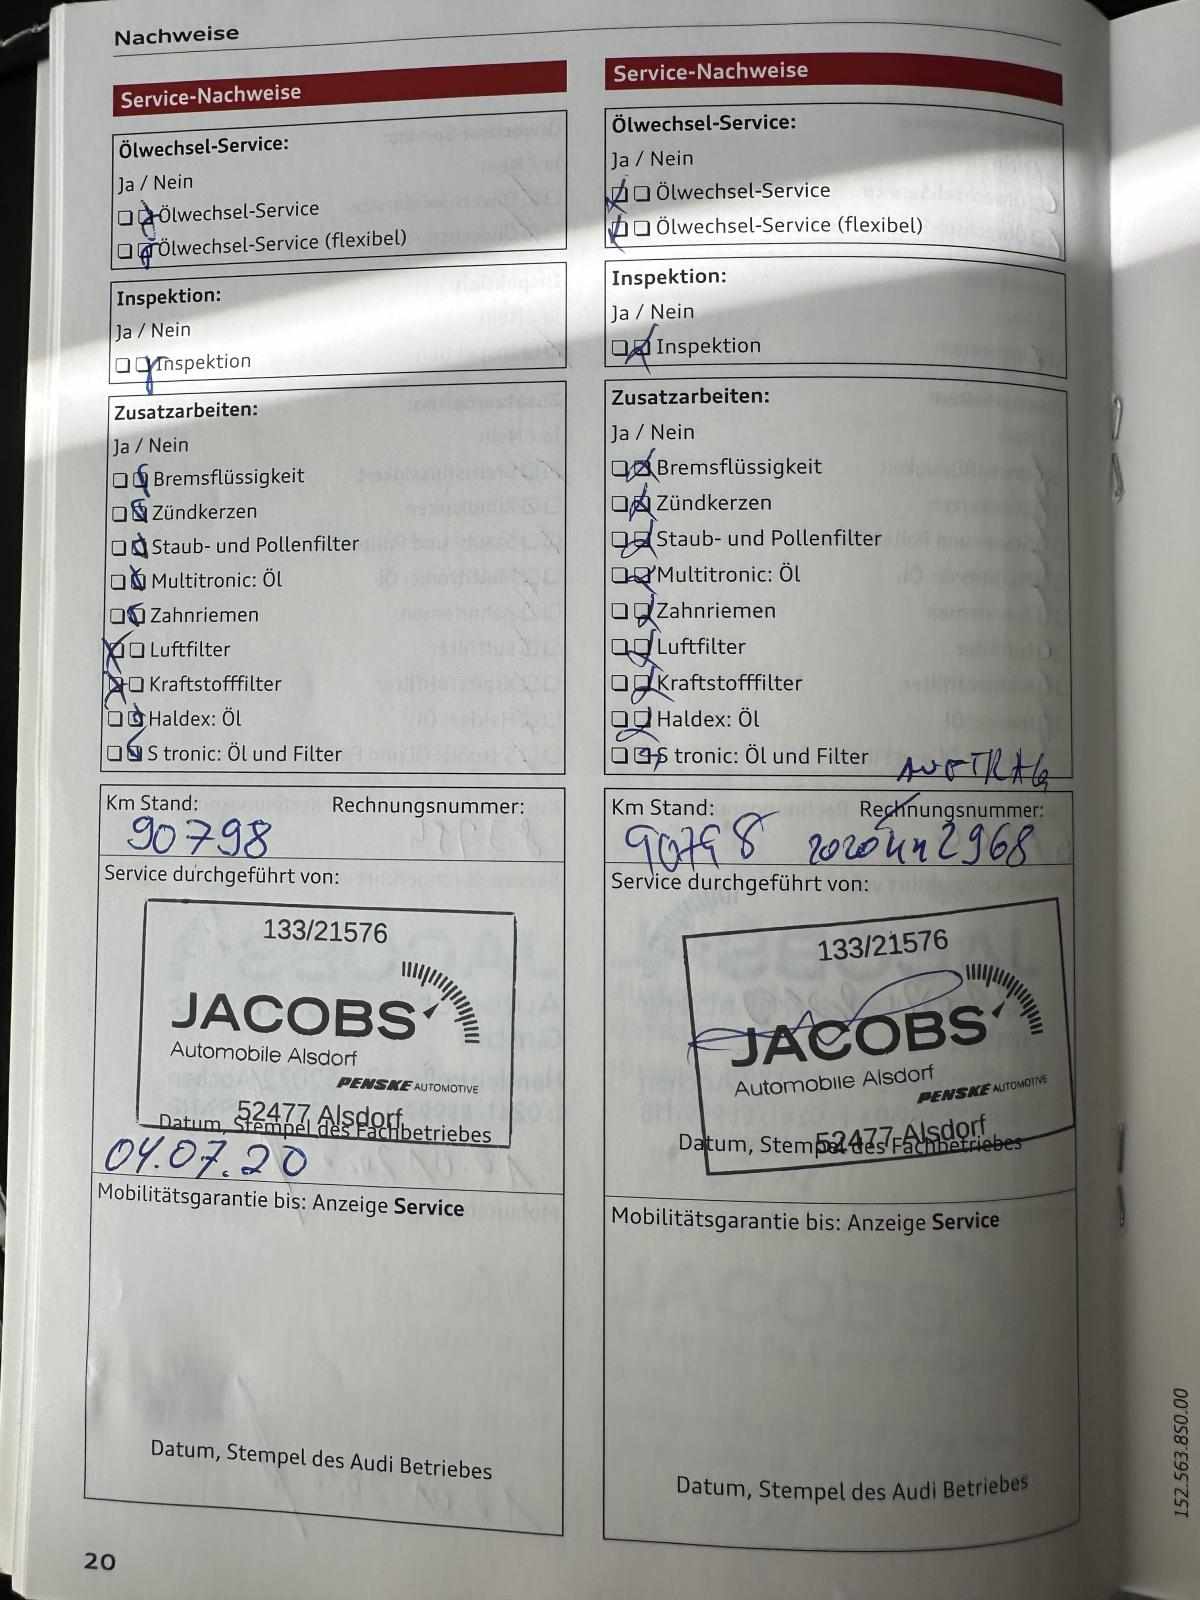 Nachweise
Service-Nachweise
Ölwechsel-Service:
Ja / Nein
Ölwechsel-Service
Ölwechsel-Service (flexibel)
Inspektion:
Ja / Nein
Inspektion
Zusatzarbeiten:
Ja / Nein
Bremsflüssigkeit
Zündkerzen
Staub- und Pollenfilter
Multitronic: Öl
Zahnriemen
Luftfilter
Kraftstofffilter
Haldex: Öl
S tronic: Öl und Filter
Km Stand: Rechnungsnummer:
90798
Service durchgeführt von:
133/21576
JACOBS
Automobile Alsdorf
PENSKE AUTOMOTIVE
52477 Alsdorf
Datum, Stempel des Fachbetriebes
04.07.20
Mobilitätsgarantie bis: Anzeige Service
Datum, Stempel des Audi Betriebes
20
Service-Nachweise
Ölwechsel-Service:
Ja / Nein
Ölwechsel-Service
Ölwechsel-Service (flexibel)
Inspektion:
Ja / Nein
Inspektion
Zusatzarbeiten:
Ja / Nein
Bremsflüssigkeit
Zündkerzen
Staub- und Pollenfilter
Multitronic: Öl
Zahnriemen
Luftfilter
Kraftstofffilter
Haldex: Öl
S tronic: Öl und Filter
AUFTRAG
Km Stand: Rechnungsnummer:
90798
Service durchgeführt von:
133/21576
JACOBS
Automobile Alsdorf
PENSKE AUTOMOTIVE
52477 Alsdorf
Datum, Stempel des Fachbetriebes
Mobilitätsgarantie bis: Anzeige Service
Datum, Stempel des Audi Betriebes
152.563.850.00